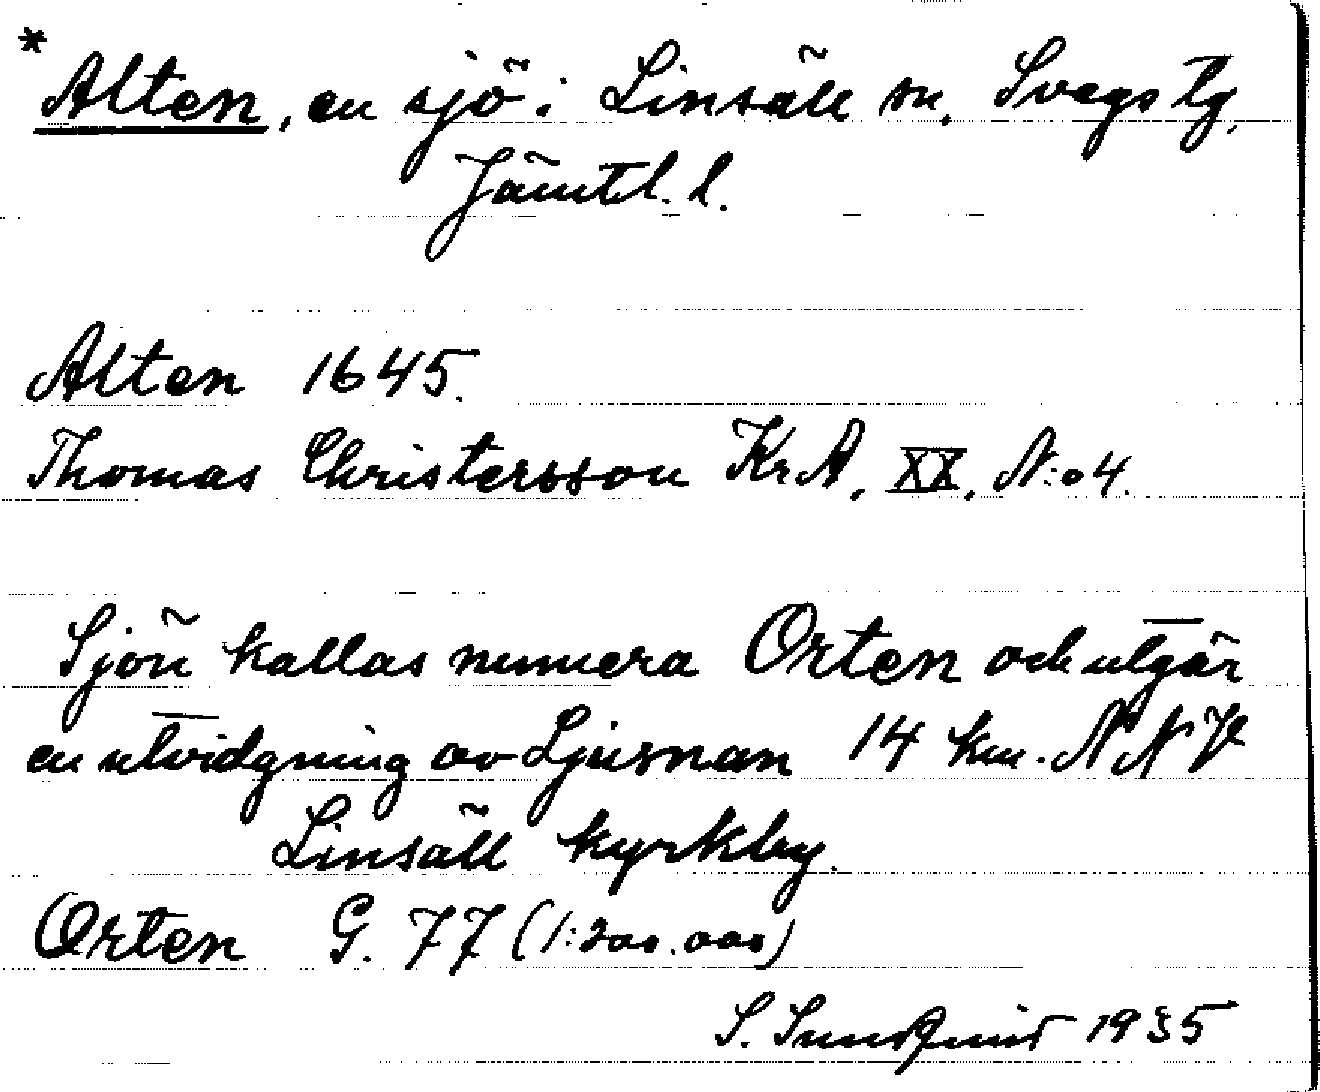 * Alten, en sjö i Linsäll sn, Svegs tg,
Jämtl. l.
Alten 1645.
Thomas Christersson KrA, XX, N:o 4.
Sjön kallas numera Orten och utgör
en utvidgning av Ljusnan 14 km. NNV
Linsäll kyrkby.
Orten G. 77 (1:200.000)
S. Sundqvist 1935